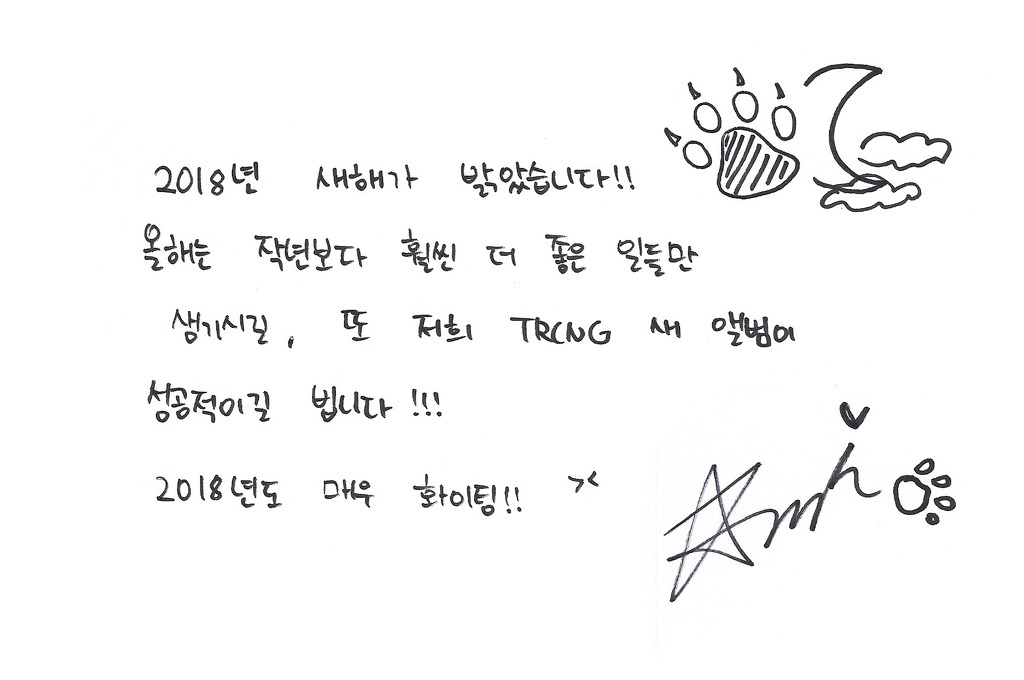 2018년 새해가 밝았습니다!!
올해는 작년보다 훨씬 더 좋은 일들만
생기시길, 또 저희 TRCNG 새 앨범이
성공적이길 빕니다!!!
2018년도 매우 화이팅!! ><